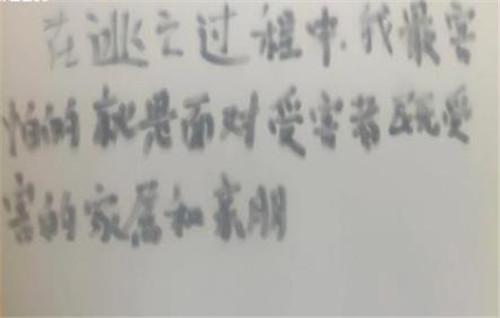 在逃亡过程中,我最害
怕的就是面对受害者 受
害的家属和亲朋